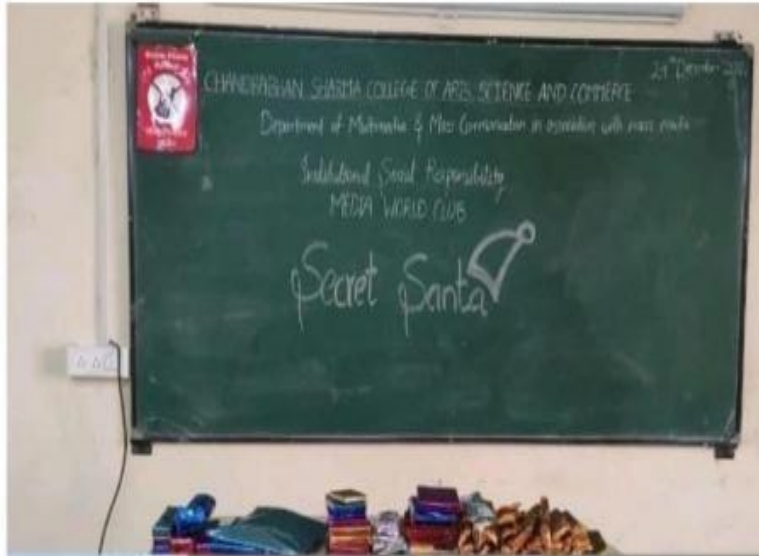 CHANDRABHAN SHARMA COLLEGE OF ARTS, SCIENCE AND COMMERCE
Department of & Mass Communication in association with mass media
Institutional Social Responsibility
MEDIA WORLD CLUB
Secret Santa